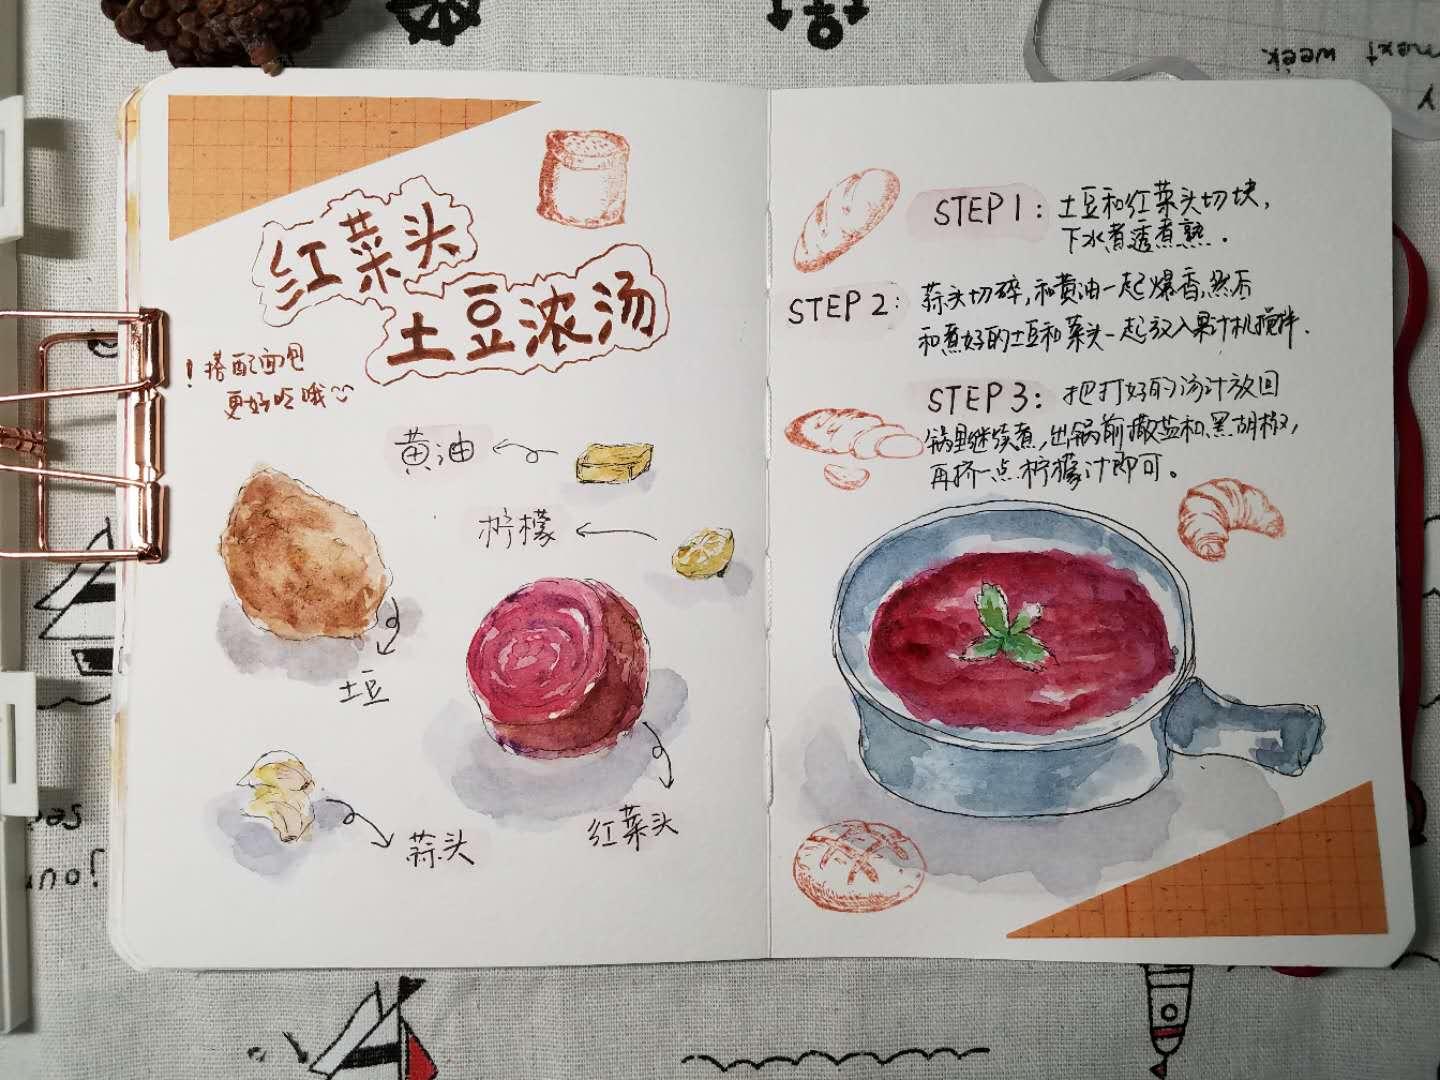 红菜头
土豆浓汤
！搭配面包
更好吃哦
黄油
柠檬
土豆
蒜头
红菜头
STEP 1：土豆和红菜头切块，
下水煮透煮熟.
STEP 2：蒜头切碎，和黄油一起爆香，然后
和煮好的土豆和菜头一起放入果汁机搅拌.
STEP 3：把打好的汤汁放回
锅里继续煮，出锅前撒盐和黑胡椒，
再挤一点柠檬汁即可。
next week